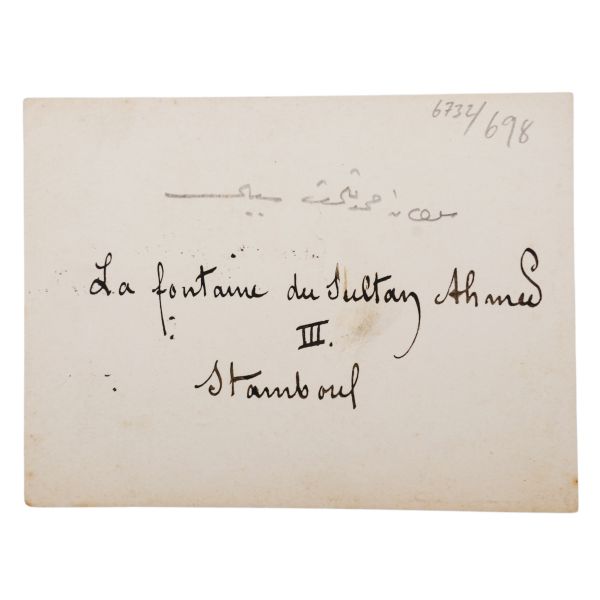 6732/698
سبيلى
La fontaine du Sultan Ahmed
III.
Stamboul